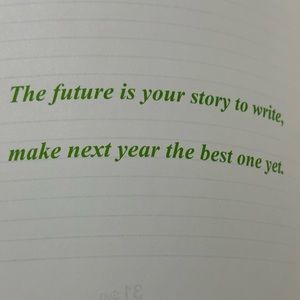 The future is your story to write,
make next year the best one yet.